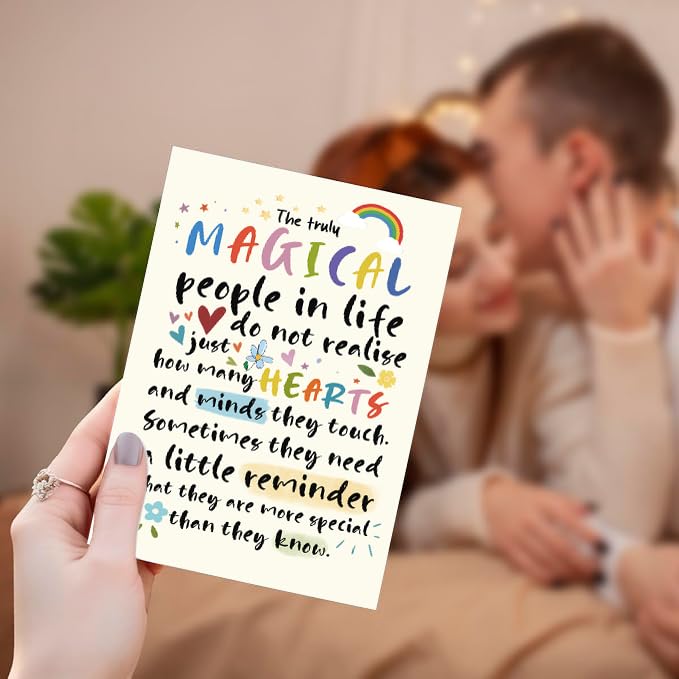 The truly
MAGICAL
people in life
do not realise
just
how many HEARTS
and minds they touch.
Sometimes they need
little reminder
that they are more special
than they know.